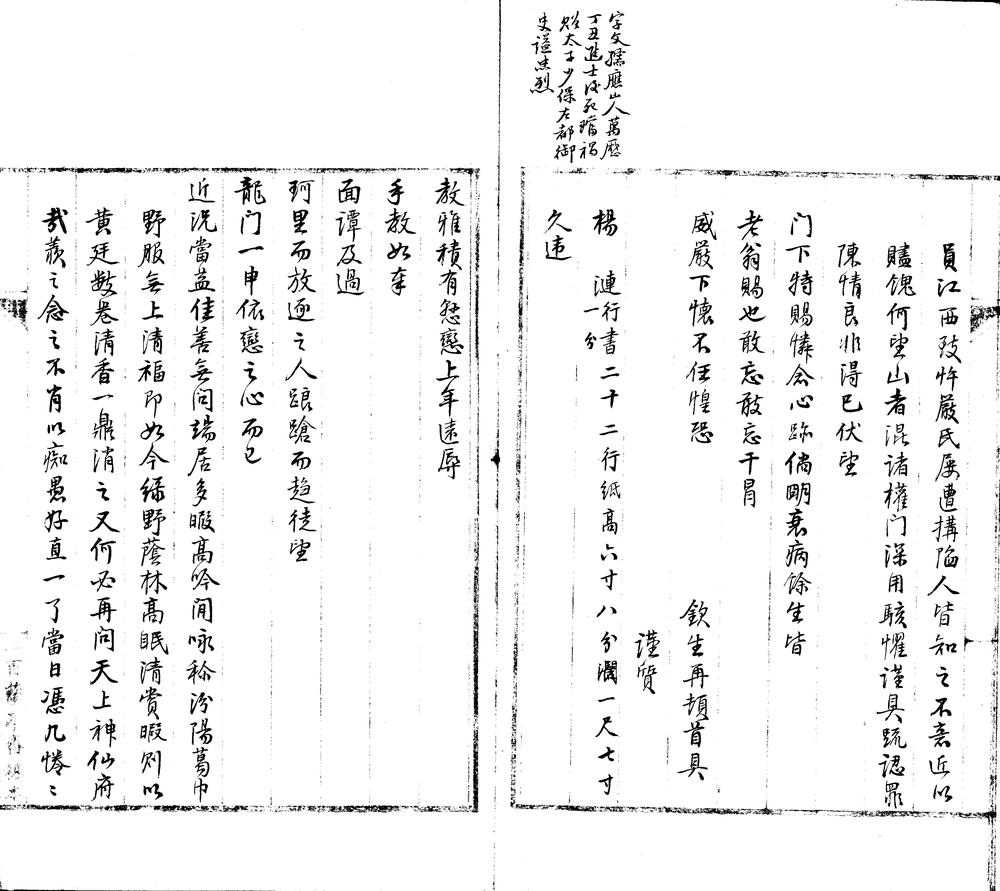 字文孺應山人萬厯
丁丑進士後死璫禍
贈太子少保左都御
史諡忠烈
員江西時忤嚴氏屢遭搆陷人皆知之不意近以
贐餽何堃山者混諸權門深用駭懼謹具疏認罪
陳情良非得已伏望
门下特賜憐念心跡倘明衰病餘生皆
老翁賜也敢忘敢忘干冒
威嚴下懷不任惶恐
欽生再頓首具
謹質
楊漣行書二十二行紙高六寸八分濶一尺七寸
一分
久違
教雅積有愁戀上年遠辱
手教如奉
面譚及過
珂里而放逐之人踉蹌而趨徒望
龍门一申依戀之心而已
近况當益佳善無问端居多暇高吟閒咏称汾陽葛巾
野服無上清福即如今绿野蔭林高眠清賞暇则以
黄廷數卷清香一鼎消之又何必再问天上神仙府
哉羨之念之不肖以痴愚好直一了當日憑几惓〻